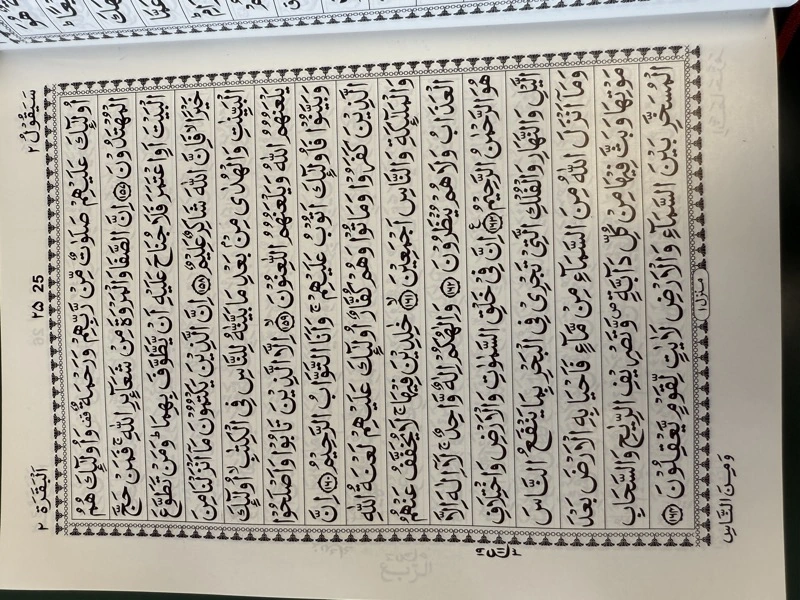 سَيَقُوْلُ ٢
٢٥ 25
اَلْبَقَرَة ٢
اُولٰٓئِكَ عَلَيْهِمْ صَلَوٰتٌ مِّنْ رَّبِّهِمْ وَرَحْمَةٌ ۫ وَاُولٰٓئِكَ هُمُ
الْمُهْتَدُوْنَ ﴿١٥٧﴾ اِنَّ الصَّفَا وَالْمَرْوَةَ مِنْ شَعَآئِرِ اللّٰهِ ۚ فَمَنْ حَجَّ
الْبَيْتَ اَوِاعْتَمَرَ فَلَا جُنَاحَ عَلَيْهِ اَنْ يَّطَّوَّفَ بِهِمَا ؕ وَمَنْ تَطَوَّعَ
خَيْرًا ۙ فَاِنَّ اللّٰهَ شَاكِرٌ عَلِيْمٌ ﴿١٥٨﴾ اِنَّ الَّذِيْنَ يَكْتُمُوْنَ مَاۤ اَنْزَلْنَا مِنَ
الْبَيِّنٰتِ وَالْهُدٰى مِنْۢ بَعْدِ مَا بَيَّنّٰهُ لِلنَّاسِ فِى الْكِتٰبِ ۙ اُولٰٓئِكَ
يَلْعَنُهُمُ اللّٰهُ وَيَلْعَنُهُمُ اللّٰعِنُوْنَ ﴿١٥٩﴾ اِلَّا الَّذِيْنَ تَابُوْا وَاَصْلَحُوْا
وَبَيَّنُوْا فَاُولٰٓئِكَ اَتُوْبُ عَلَيْهِمْ ۚ وَاَنَا التَّوَّابُ الرَّحِيْمُ ﴿١٦٠﴾ اِنَّ
الَّذِيْنَ كَفَرُوْا وَمَاتُوْا وَهُمْ كُفَّارٌ اُولٰٓئِكَ عَلَيْهِمْ لَعْنَةُ اللّٰهِ
وَالْمَلٰٓئِكَةِ وَالنَّاسِ اَجْمَعِيْنَ ﴿١٦١﴾ خٰلِدِيْنَ فِيْهَا ۚ لَا يُخَفَّفُ عَنْهُمُ
الْعَذَابُ وَلَا هُمْ يُنْظَرُوْنَ ﴿١٦٢﴾ وَاِلٰهُكُمْ اِلٰهٌ وَّاحِدٌ ۚ لَاۤ اِلٰهَ اِلَّا
هُوَ الرَّحْمٰنُ الرَّحِيْمُ ﴿١٦٣﴾ اِنَّ فِىْ خَلْقِ السَّمٰوٰتِ وَالْاَرْضِ وَاخْتِلَافِ
الَّيْلِ وَالنَّهَارِ وَالْفُلْكِ الَّتِىْ تَجْرِىْ فِى الْبَحْرِ بِمَا يَنْفَعُ النَّاسَ
وَمَاۤ اَنْزَلَ اللّٰهُ مِنَ السَّمَآءِ مِنْ مَّآءٍ فَاَحْيَا بِهِ الْاَرْضَ بَعْدَ
مَوْتِهَا وَبَثَّ فِيْهَا مِنْ كُلِّ دَآبَّةٍ ۪ وَّتَصْرِيْفِ الرِّيٰحِ وَالسَّحَابِ
الْمُسَخَّرِ بَيْنَ السَّمَآءِ وَالْاَرْضِ لَاٰيٰتٍ لِّقَوْمٍ يَّعْقِلُوْنَ ﴿١٦٤﴾
منزل ١
وَمِنَ النَّاسِ